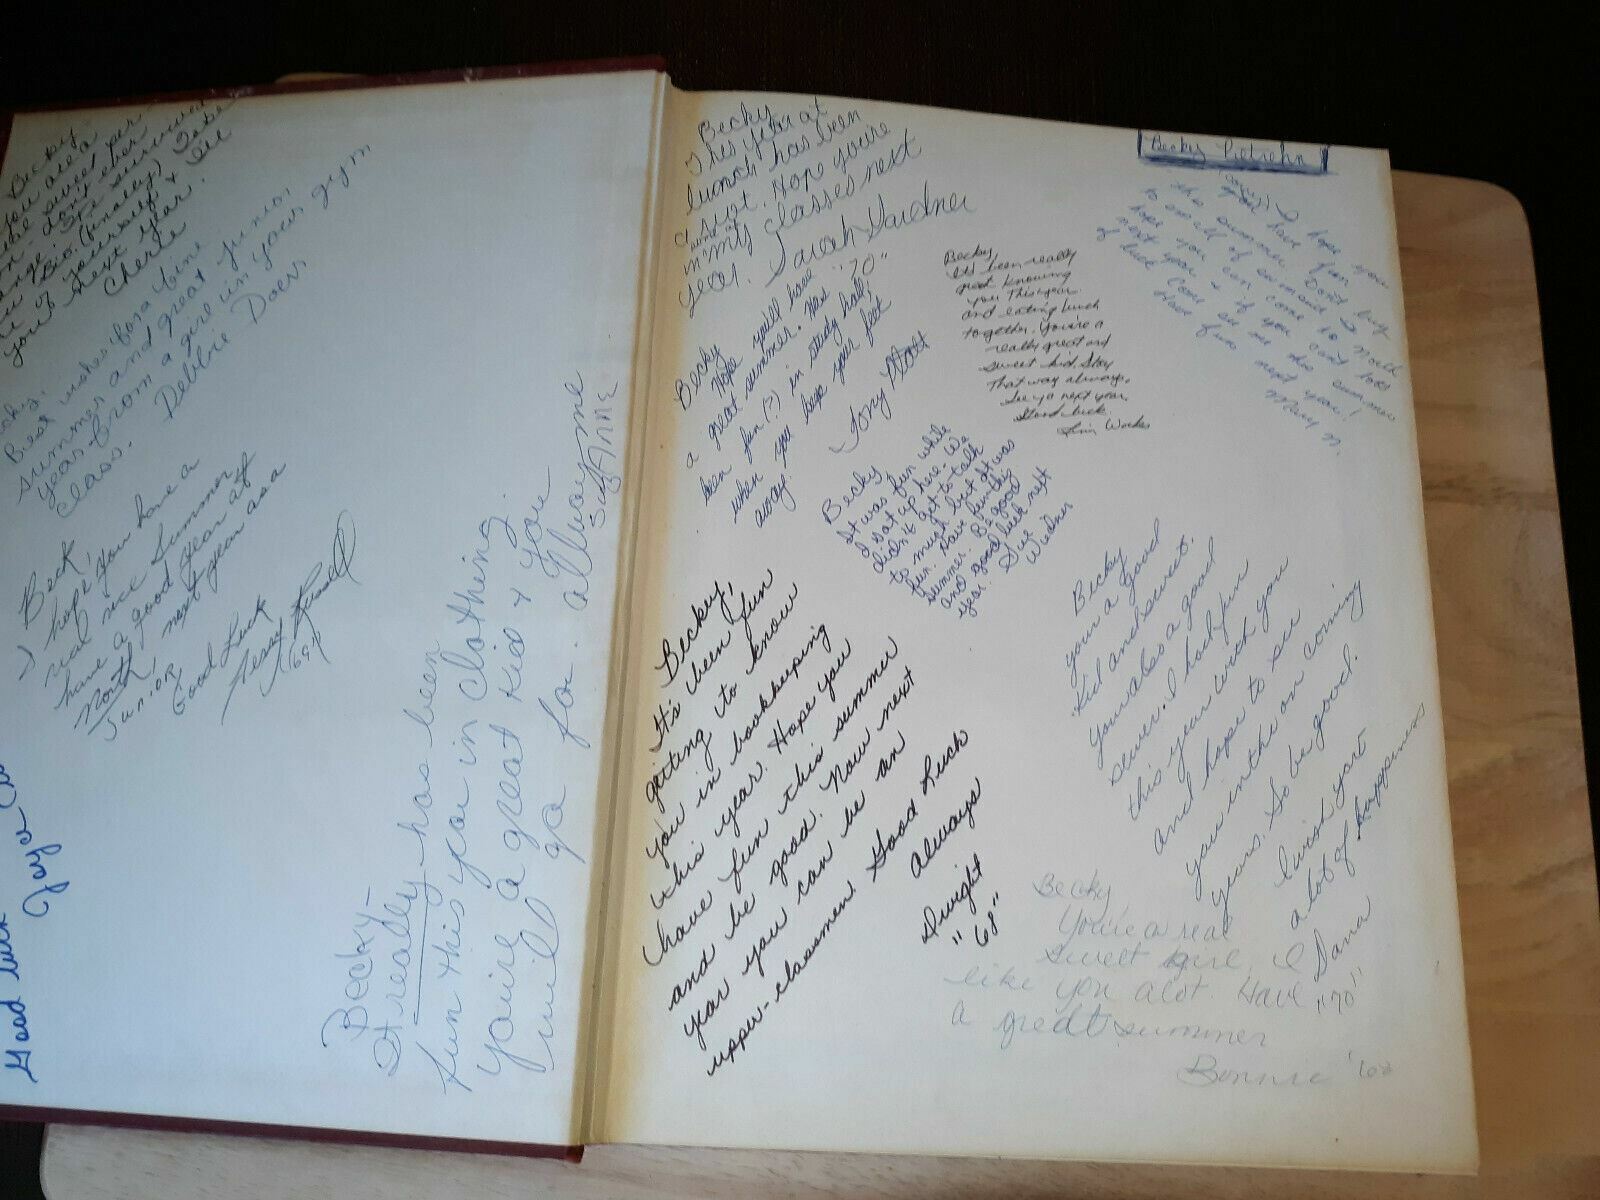 Becky
You are a
sweet per
don't ever
I've survived
Bio. (finally) Take
of yourself &
you next year.
Cherie
Best wishes for a fun
summer and great junior
year from a girl in your gym
class. Debbie Doerr
Beck,
I hope you have a
real nice Summer
have a good year at
North, next year as a
Junior
Good Luck
Good luck
Becky-
It really has been
fun this year in clothing.
You're a great kid & you
will go far. Allways me
Becky
This year at
lunch has been
a riot. Hope you're
in my classes next
year. Sarah Gardner
"70"
Becky
Hope you'll have
a great summer. Has
been fun (?) in study hall,
when you keep your feet
away!
Tony
Becky Pietrehn
I hope you
have fun
this summer. Don't
hope you can come to North
next year & if you can't lots
of luck Come see me this summer
Have fun next year!
Mary N.
Becky
It's been really
great knowing
you this year
and eating lunch
together. You're a
really great and
sweet kid. Stay
that way always.
See ya next year.
Good luck
Becky
It was fun while
I sat up here. We
didn't get to talk
to much but it was
fun. Have fun this
summer. Be good
and good luck next
year. Sue
Weidner
Becky,
It's been fun
getting to know
you in bookkeeping
this year. Hope you
have fun this summer
and be good. Now next
year you can be an
upper-classmen. Good Luck
Always
Dwight
"68"
Becky
your a good
kid and sweet.
You also a good
sewer. I had fun
this year with you
and hope to see
you in the on coming
years. So be good.
I wish you
a lot of happiness
Dana
"70"
Becky
You're a real
sweet girl, I
like you alot. Have
a great summer
Bonnie